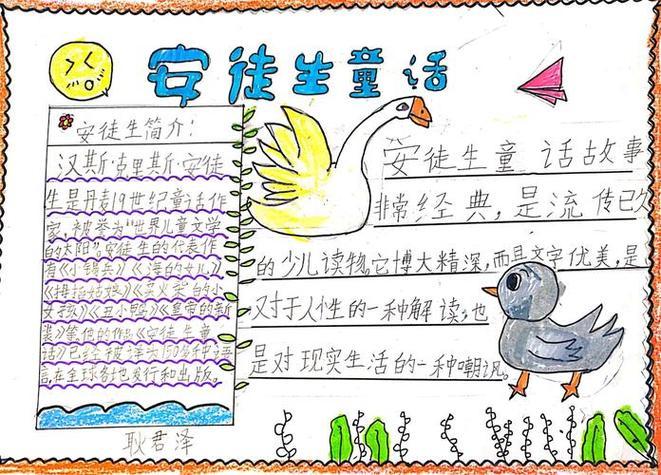 安徒生童话
安徒生简介:
汉斯·克里斯·安徒
生是丹麦19世纪童话作
家,被誉为“世界儿童文学
的太阳”,安徒生的代表作
有《小锡兵》《海的女儿》
《拇指姑娘》《卖火柴的小
女孩》《丑小鸭》《皇帝的新
装》等他的作品《安徒生童
话》已经被译为150多种语
言,在全球各地发行和出版。
安徒生童话故事
非常经典,是流传已久
的少儿读物,它博大精深,而且文字优美,是
又对于人性的一种解读,也
是对现实生活的一种嘲讽。
耿君泽